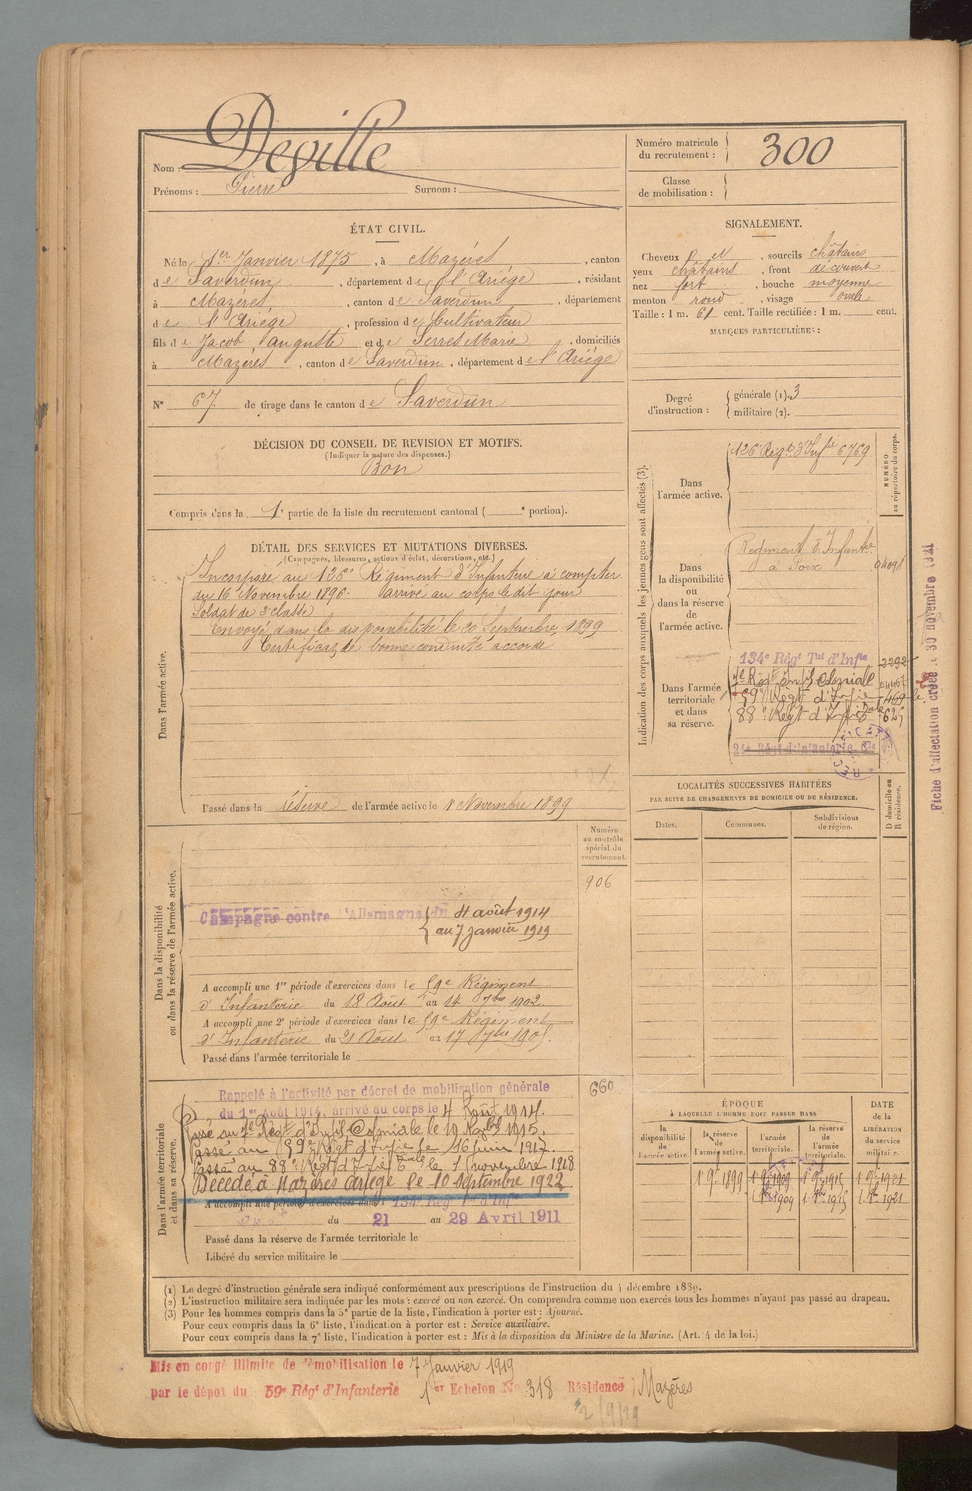 Nom : Deville
Prénoms : Pierre Surnom :
Numéro matricule
du recrutement : 300
Classe
de mobilisation :
ÉTAT CIVIL.
Né le 1er Janvier 1875, à Mazères, canton
de Saverdun, département de l'Ariège, résidant
à Mazères, canton de Saverdun, département
de l'Ariège, profession de Cultivateur
fils de Jacob, auguste et de Serres Marie, domiciliés
à Mazères, canton de Saverdun, département de l'Ariège
N° 67 de tirage dans le canton de Saverdun
SIGNALEMENT.
Cheveux et, sourcils châtains
yeux châtains, front découvert
nez fort, bouche moyenne
menton rond, visage ovale
Taille : 1 m. 61 cent. Taille rectifiée : 1 m. cent.
MARQUES PARTICULIÈRES :
Degré
d'instruction :
générale (1). 3
militaire (2).
DÉCISION DU CONSEIL DE REVISION ET MOTIFS.
(Indiquer la nature des dispenses.)
Bon
Compris dans la 1e partie de la liste du recrutement cantonal ( e portion).
DÉTAIL DES SERVICES ET MUTATIONS DIVERSES.
(Campagnes, blessures, actions d'éclat, décorations, etc.)
Dans l'armée active.
Incorporé au 126e Régiment d'Infanterie à compter
du 16 Novembre 1896. arrivé au corps le dit jour
Soldat de 2e classe
Envoyé dans la disponibilité le 20 Septembre 1899
Certificat de bonne conduite accordé
Passé dans la réserve de l'armée active le 1 Novembre 1899
Indication des corps auxquels les jeunes gens sont affectés (3).
NUMÉRO
au répertoire du corps.
Dans
l'armée active.
126 Régt d'Infie 6769
Dans
la disponibilité
ou
dans la réserve
de
l'armée active.
Régiment d'Infantie
à Foix
Dans l'armée
territoriale
et dans
sa réserve.
134e Régt Tal d'Infie
Régt Infie Coloniale
59e Régt d'Infie
88e Régt d'Infie
Fiche d'affectation créée le 30 novembre 1921
LOCALITÉS SUCCESSIVES HABITÉES
PAR SUITE DE CHANGEMENTS DE DOMICILE OU DE RÉSIDENCE.
D domicile ou
R résidence.
Dates.
Communes.
Subdivisions
de région.
Numéro
au contrôle
spécial du
recrutement.
906
Dans la disponibilité
ou dans la réserve de l'armée active.
Campagne contre l'Allemagne du 4 août 1914
au 7 janvier 1919
A accompli une 1re période d'exercices dans le 59e Régiment
d'Infanterie du 18 Août au 14 7bre 1902.
A accompli une 2e période d'exercices dans le 59e Régiment
d'Infanterie du 21 Août au 17 7bre 1905.
Passé dans l'armée territoriale le
Dans l'armée territoriale
et dans sa réserve.
660
Rappelé à l'activité par décret de mobilisation générale
du 1er août 1914, arrivé au corps le 4 Août 1914.
Passé au Régt d'Infie Coloniale le 1915.
Passé au 59e Régt d'Infie le 16 juin 1917.
Passé au 88e Régt d'Infie le 1 novembre 1918
Décédé à Mazères Ariège le 10 Septembre 1922
A accompli une période d'exercices dans 134e Régt Tal d'Infie
du 21 au 29 Avril 1911
Passé dans la réserve de l'armée territoriale le
Libéré du service militaire le
ÉPOQUE
À LAQUELLE L'HOMME DOIT PASSER DANS
la
disponibilité
de
l'armée active.
la réserve
de
l'armée active.
l'armée
territoriale.
la réserve
de
l'armée
territoriale.
DATE
de la
LIBÉRATION
du service
militaire.
(1) Le degré d'instruction générale sera indiqué conformément aux prescriptions de l'instruction du 4 décembre 1889.
(2) L'instruction militaire sera indiquée par les mots : exercé ou non exercé. On comprendra comme non exercés tous les hommes n'ayant pas passé au drapeau.
(3) Pour les hommes compris dans la 5e partie de la liste, l'indication à porter est : Ajourné.
Pour ceux compris dans la 6e liste, l'indication à porter est : Service auxiliaire.
Pour ceux compris dans la 7e liste, l'indication à porter est : Mis à la disposition du Ministre de la Marine. (Art. 4 de la loi.)
Mis en congé illimité de démobilisation le 7 Janvier 1919
par le dépôt du 59e Régt d'Infanterie 1er Echelon No 318 Résidence Mazères